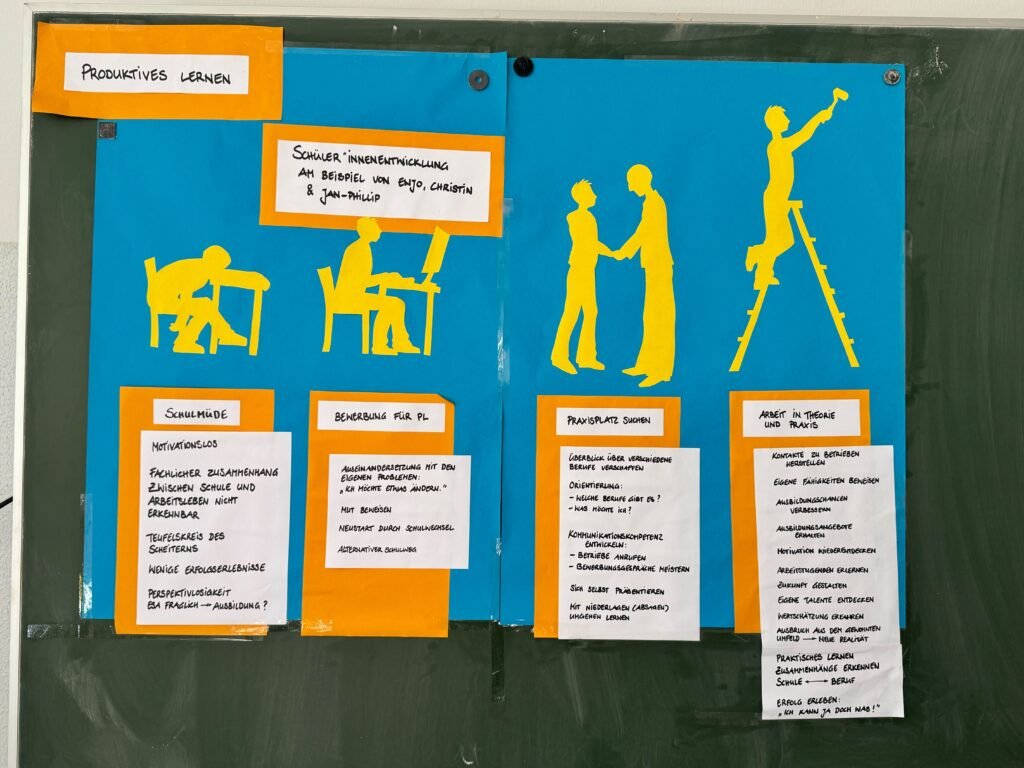 PRODUKTIVES LERNEN
SCHÜLER*INNENENTWICKLUNG
AM BEISPIEL VON ENJO, CHRISTIN
& JAN-PHILLIP
SCHULMÜDE
MOTIVATIONSLOS
FACHLICHER ZUSAMMENHANG
ZWISCHEN SCHULE UND
ARBEITSLEBEN NICHT
ERKENNBAR
TEUFELSKREIS DES
SCHEITERNS
WENIGE ERFOLGSERLEBNISSE
PERSPEKTIVLOSIGKEIT
EBA FRAGLICH → AUSBILDUNG?
BEWERBUNG FÜR PL
AUSEINANDERSETZUNG MIT DEN
EIGENEN PROBLEMEN:
„ICH MÖCHTE ETWAS ÄNDERN."
MUT BEWEISEN
NEUSTART DURCH SCHULWECHSEL
ALTERNATIVER SCHULWEG
PRAXISPLATZ SUCHEN
ÜBERBLICK ÜBER VERSCHIEDENE
BERUFE VERSCHAFFEN
ORIENTIERUNG:
- WELCHE BERUFE GIBT ES?
- WAS MÖCHTE ICH?
KOMMUNIKATIONSKOMPETENZ
ENTWICKELN:
- BETRIEBE ANRUFEN
- BEWERBUNGSGESPRÄCHE MEISTERN
SICH SELBST PRÄSENTIEREN
MIT NIEDERLAGEN (ABSAGEN)
UMGEHEN LERNEN
ARBEIT IN THEORIE
UND PRAXIS
KONTAKTE ZU BETRIEBEN
HERSTELLEN
EIGENE FÄHIGKEITEN BEWEISEN
AUSBILDUNGSCHANCEN
VERBESSERN
AUSBILDUNGSANGEBOTE
ERHALTEN
MOTIVATION WIEDERENTDECKEN
ARBEITSTUGENDEN ERLERNEN
ZUKUNFT GESTALTEN
EIGENE TALENTE ENTDECKEN
WERTSCHÄTZUNG ERFAHREN
AUSBRUCH AUS DEM GEWOHNTEN
UMFELD → NEUE REALITÄT
PRAKTISCHES LERNEN
ZUSAMMENHÄNGE ERKENNEN
SCHULE ↔ BERUF
ERFOLG ERLEBEN:
„ICH KANN JA DOCH WAS!"